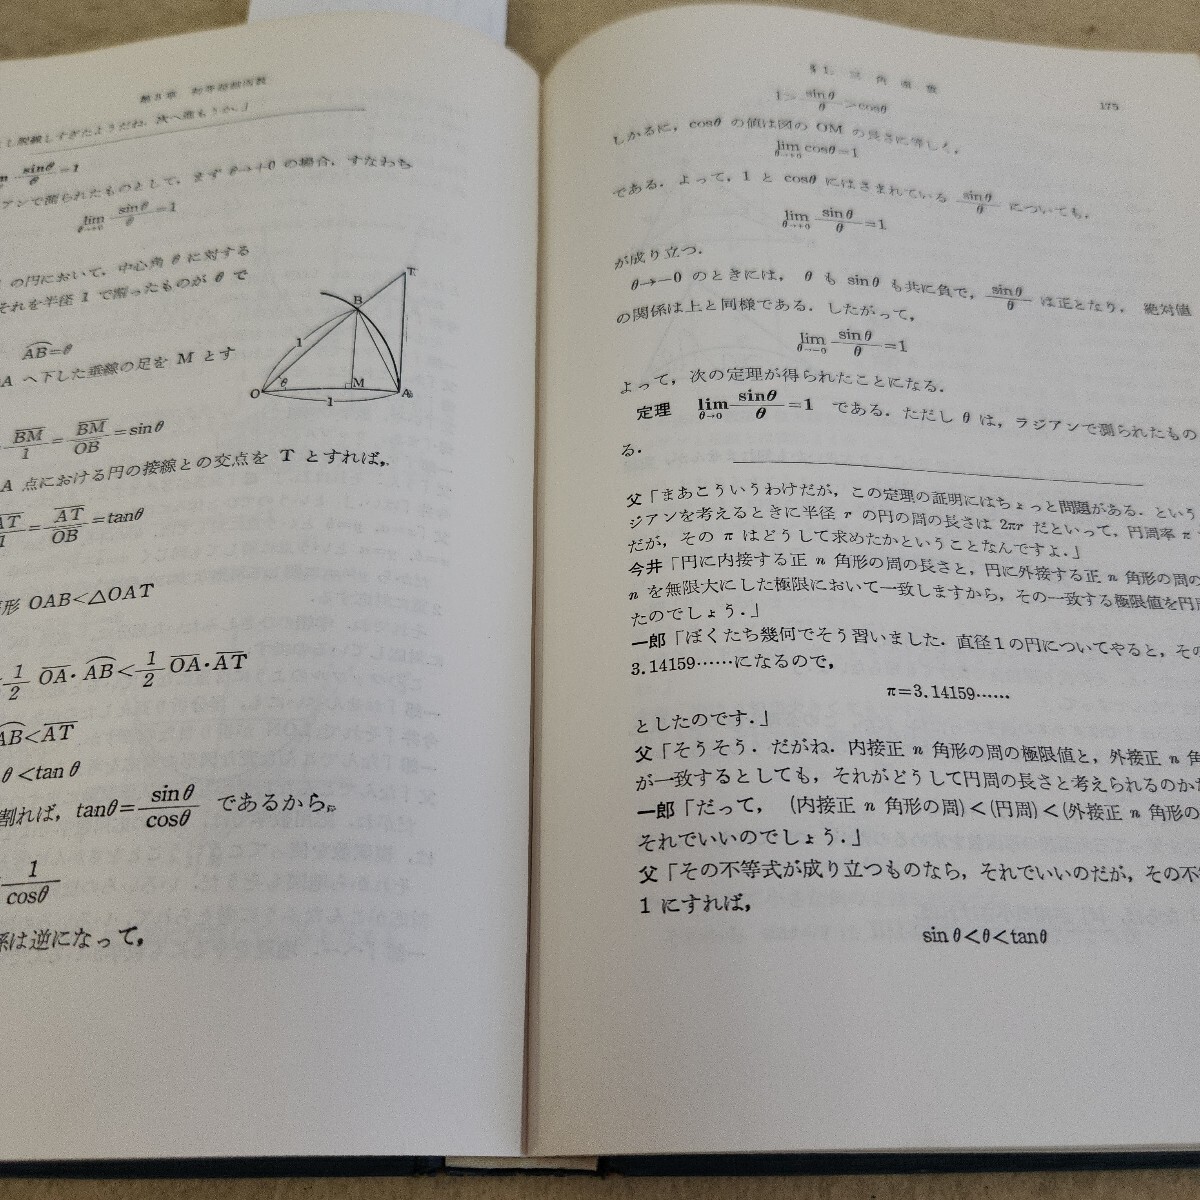 第8章 初等超越函数
し脱線しすぎたようだね．次へ進もうか．」
sinθ/θ=1
アンで測られたものとして，まず θ→+0 の場合，すなわち
lim θ→+0 sinθ/θ=1
の円において，中心角 θ に対する
それを半径 1 で割ったものが θ で
AB=θ
A へ下した垂線の足を M とす
BM/1=BM/OB=sinθ
A 点における円の接線との交点を T とすれば，
AT/1=AT/OB=tanθ
形 OAB<△OAT
1/2 OA・AB<1/2 OA・AT
AB<AT
θ<tanθ
割れば，tanθ=sinθ/cosθ であるから，
1/cosθ
係は逆になって，
T
B
1
θ
O
M
A
1
§1. 三角函数
175
1>sinθ/θ>cosθ
しかるに，cosθ の値は図の OM の長さに等しく，
lim θ→+0 cosθ=1
である．よって，1 と cosθ にはさまれている sinθ/θ についても，
lim θ→+0 sinθ/θ=1
が成り立つ．
θ→−0 のときには，θ も sinθ も共に負で，sinθ/θ は正となり，絶対値
の関係は上と同様である．したがって，
lim θ→−0 sinθ/θ=1
よって，次の定理が得られたことになる．
定理 lim θ→0 sinθ/θ=1 である．ただし θ は，ラジアンで測られたもの
る．
父「まあこういうわけだが，この定理の証明にはちょっと問題がある．という
ジアンを考えるときに半径 r の円の周の長さは 2πr だといって，円周率 π
だが，その π はどうして求めたかということなんですよ．」
今井「円に内接する正 n 角形の周の長さと，円に外接する正 n 角形の周の
n を無限大にした極限において一致しますから，その一致する極限値を円周
たのでしょう．」
一郎「ぼくたち幾何でそう習いました．直径1の円についてやると，その
3.14159……になるので，
π=3.14159……
としたのです．」
父「そうそう．だがね．内接正 n 角形の周の極限値と，外接正 n 角
が一致するとしても，それがどうして円周の長さと考えられるのか
一郎「だって，(内接正 n 角形の周)<(円周)<(外接正 n 角形の
それでいいのでしょう．」
父「その不等式が成り立つものなら，それでいいのだが，その不
1 にすれば，
sinθ<θ<tanθ